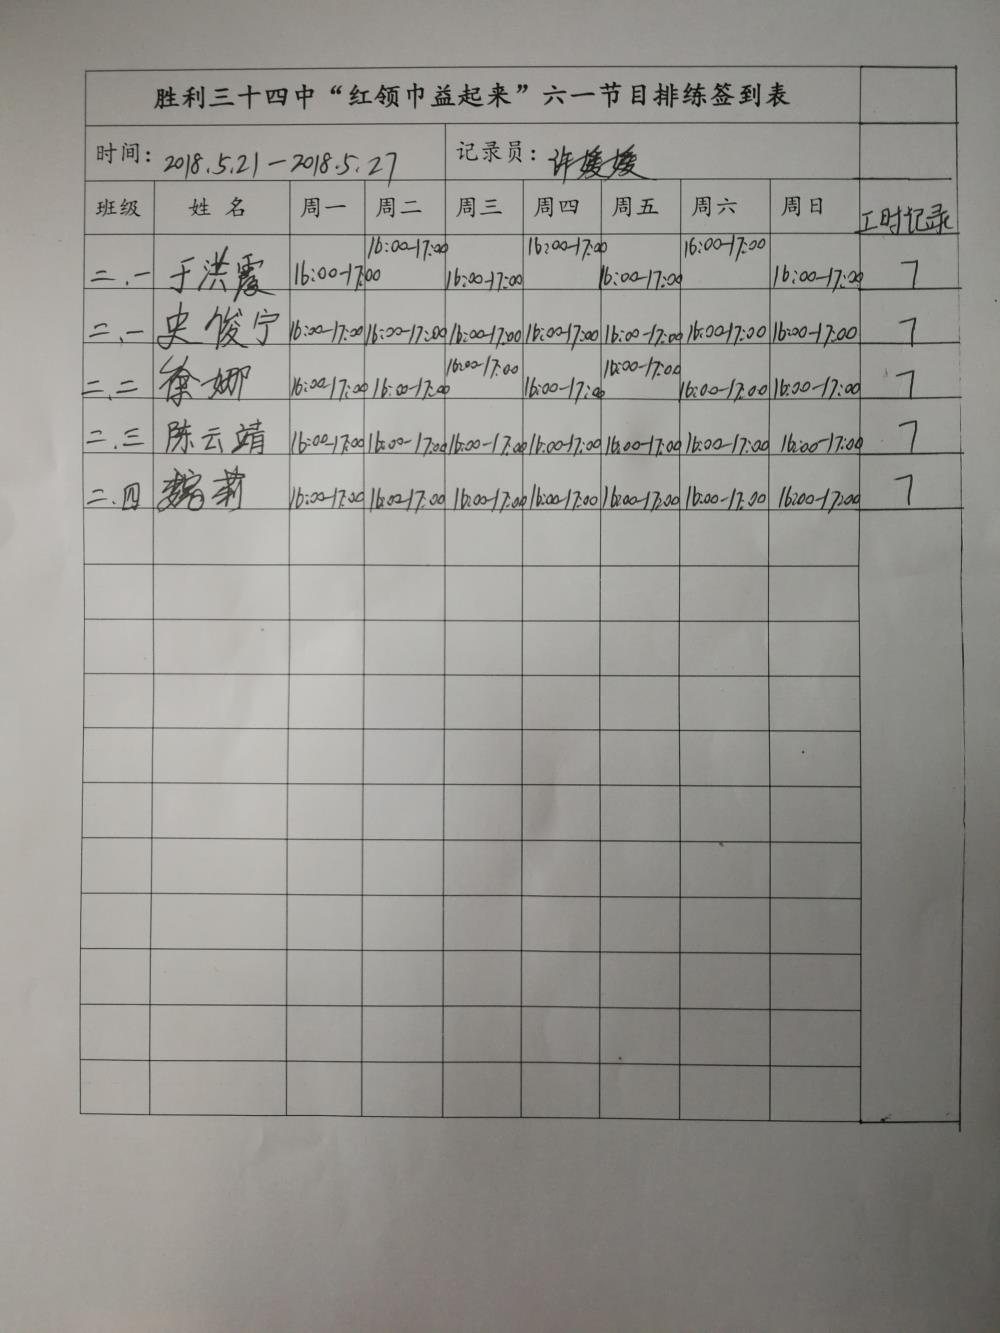 胜利三十四中“红领巾益起来”六一节目排练签到表
时间：2018.5.21—2018.5.27 记录员：许媛媛
班级 姓名 周一 周二 周三 周四 周五 周六 周日 工时记录
二.一 于洪霞 16:00-17:00 16:00-17:00 16:00-17:00 16:00-17:00 16:00-17:00 16:00-17:00 16:00-17:00 7
二.一 史俊宁 16:00-17:00 16:00-17:00 16:00-17:00 16:00-17:00 16:00-17:00 16:00-17:00 16:00-17:00 7
二.二 徐娜 16:00-17:00 16:00-17:00 16:00-17:00 16:00-17:00 16:00-17:00 16:00-17:00 16:00-17:00 7
二.三 陈云靖 16:00-17:00 16:00-17:00 16:00-17:00 16:00-17:00 16:00-17:00 16:00-17:00 16:00-17:00 7
二.四 魏莉 16:00-17:00 16:00-17:00 16:00-17:00 16:00-17:00 16:00-17:00 16:00-17:00 16:00-17:00 7